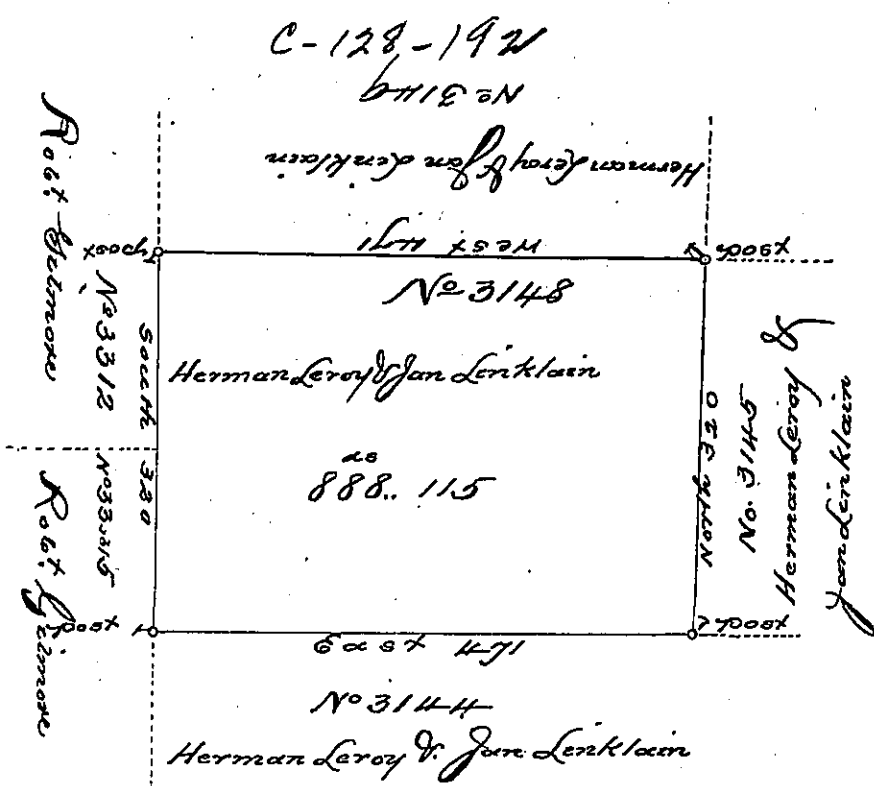 C-128-192
No 3149
Herman Leroy & Jan Linklain
West 471
post
post
No 3148
Herman Leroy & Jan Linklain
as
888.. 115
Robt Gilmore
No 3312
South 320
No 3315
Robt Gilmore
North 320
No. 3145
Herman Leroy &
Jan Linklain
post
post
East 471
No 3144
Herman Leroy & Jan Linklain